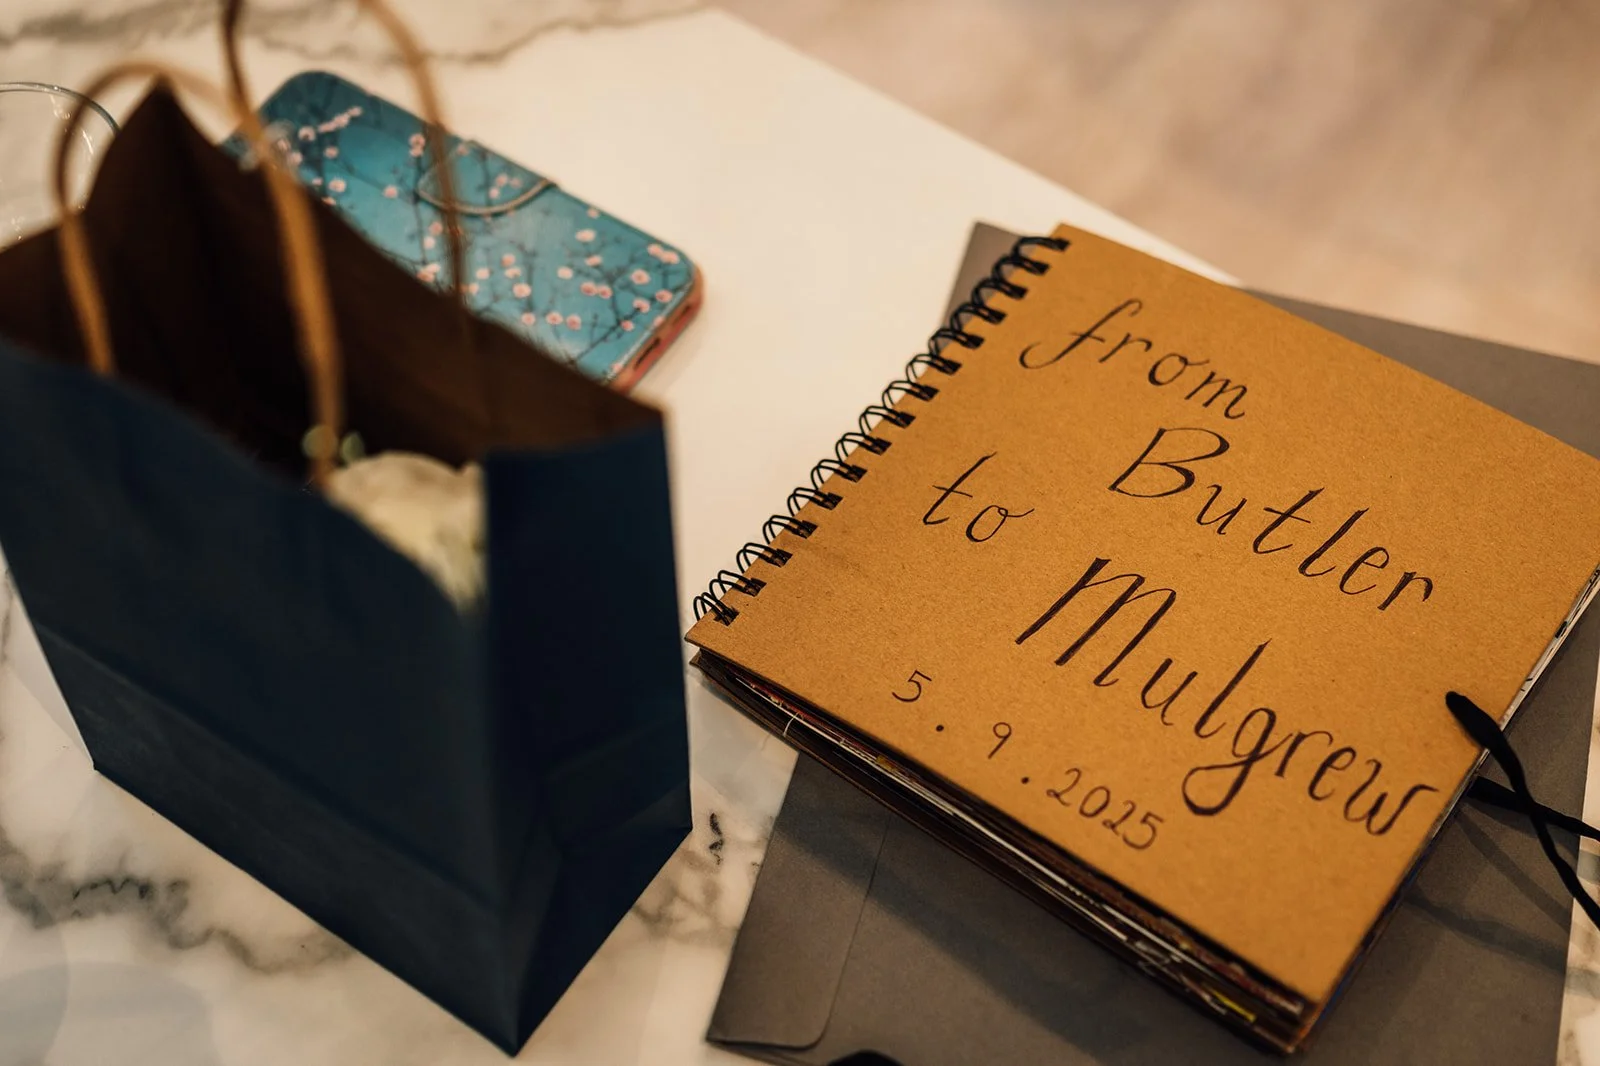 from
Butler
to
Mulgrew
5.9.2025